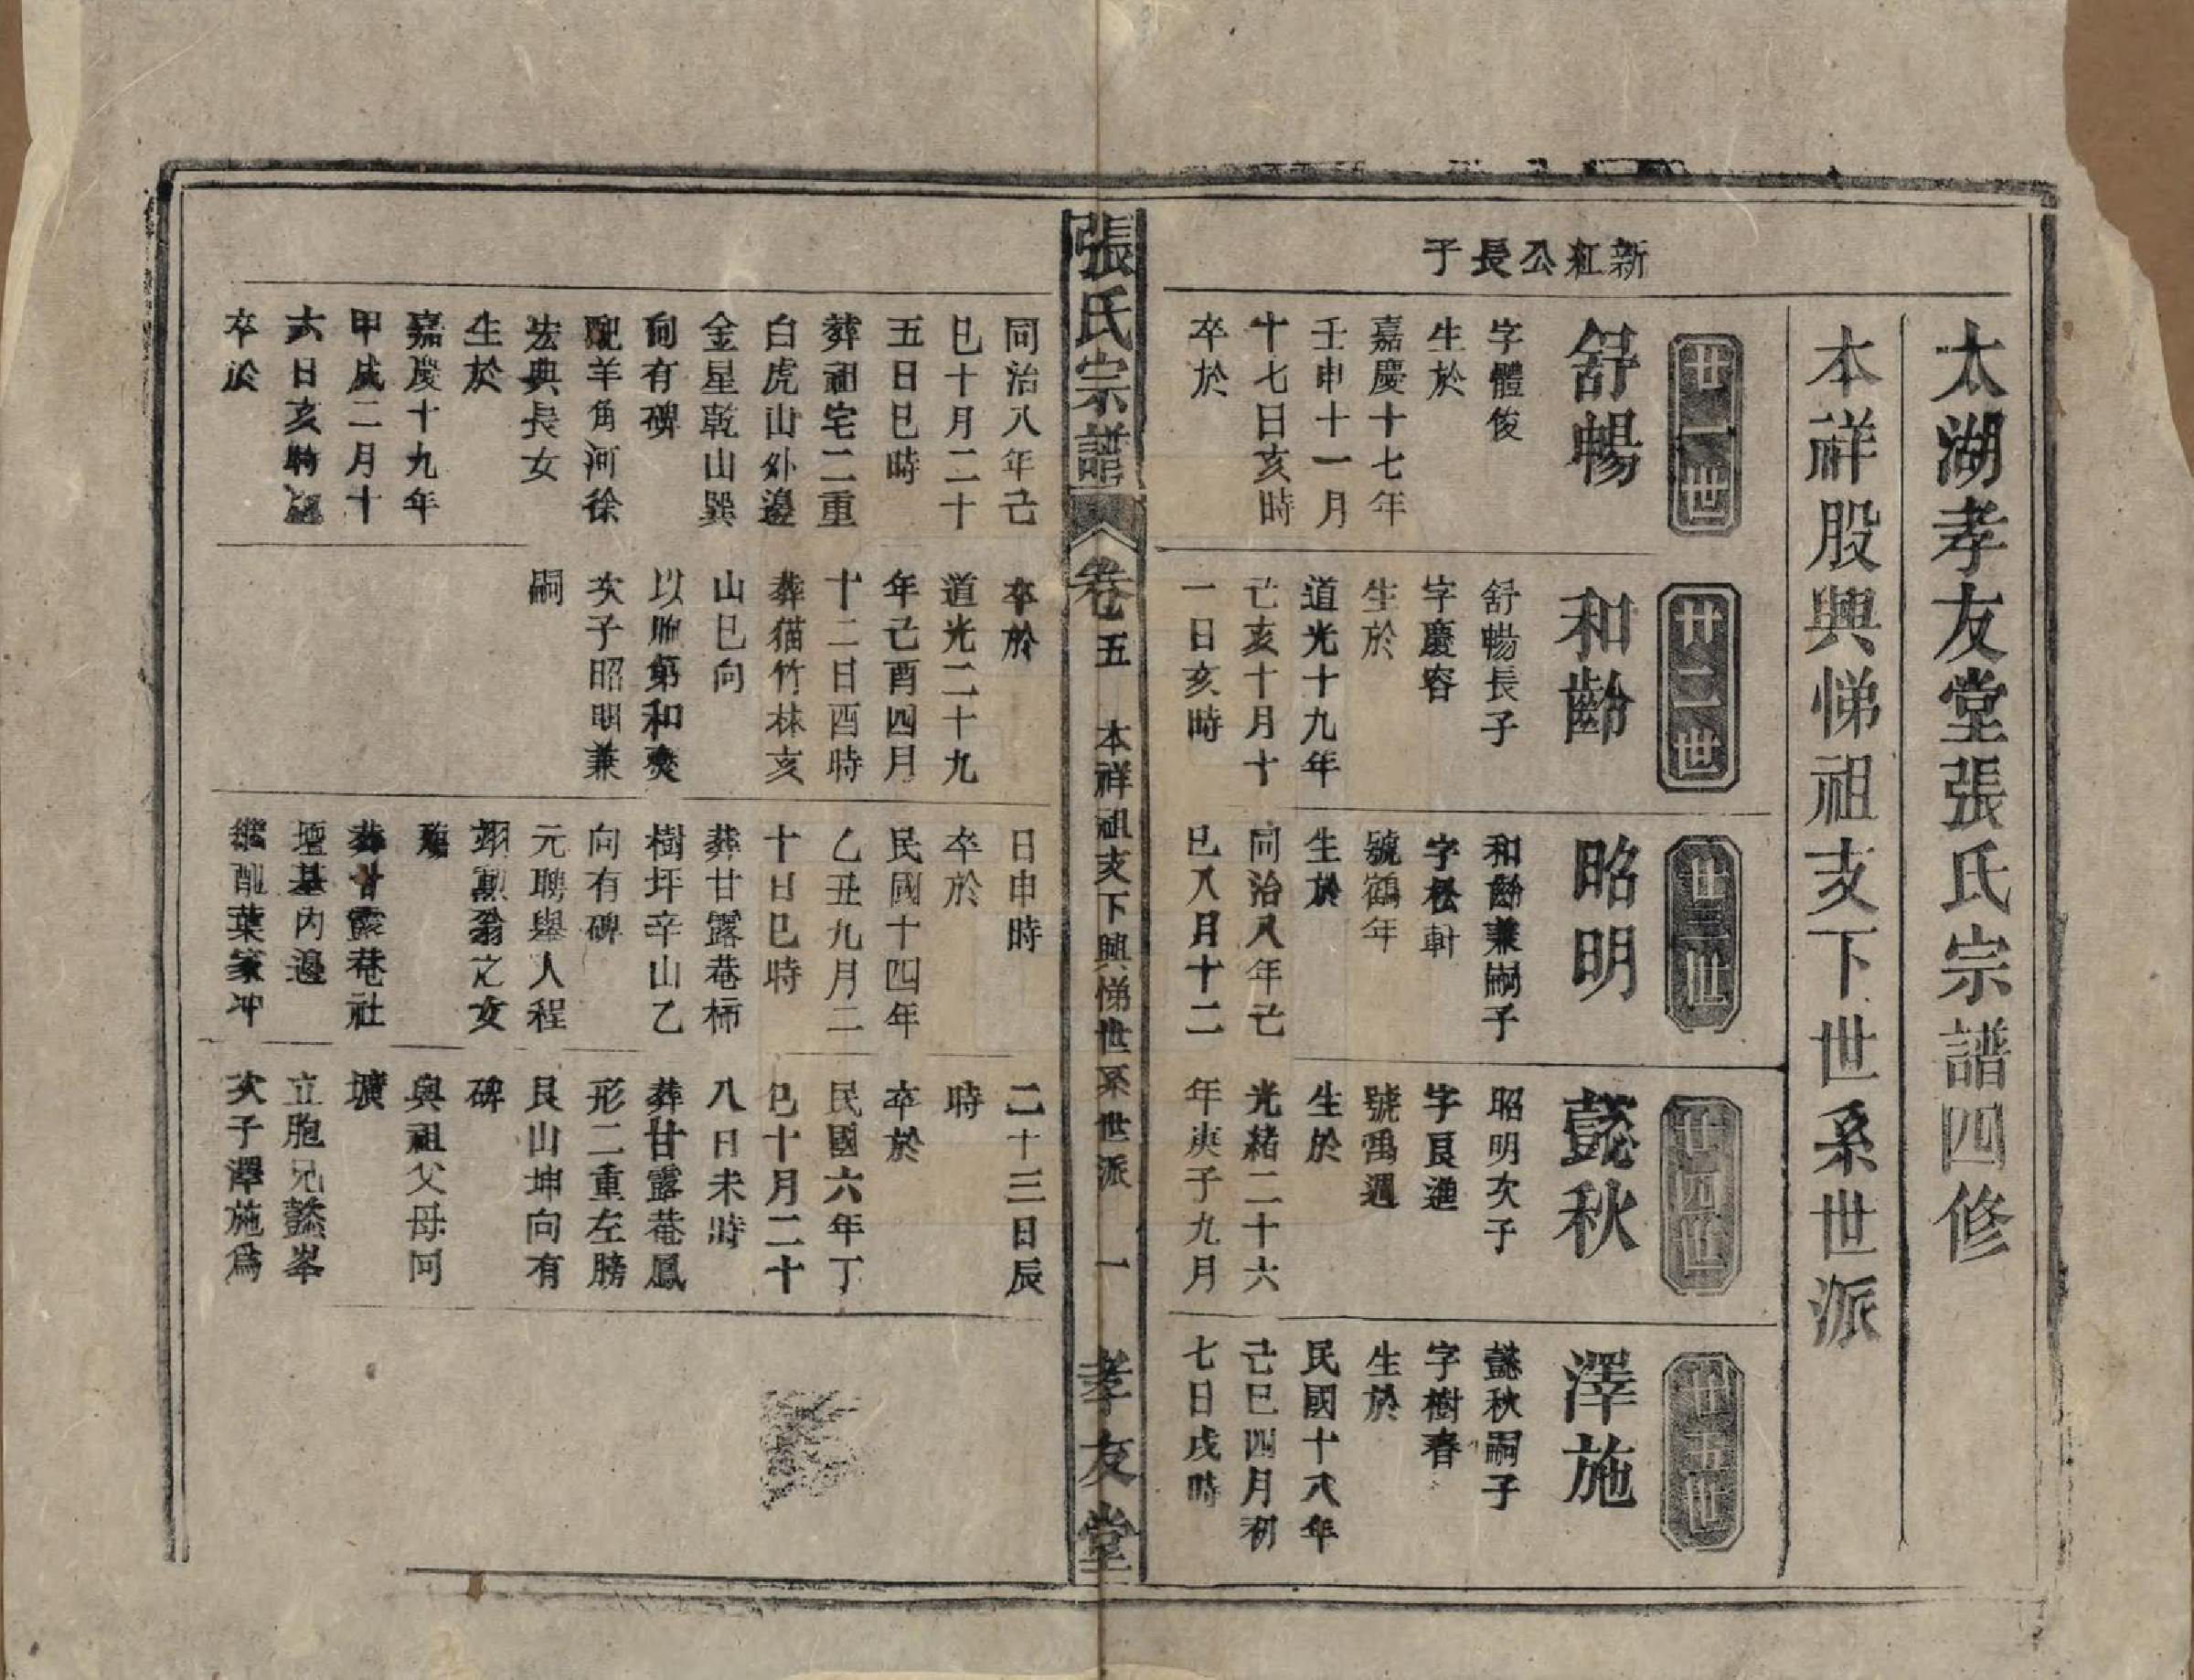 太湖孝友堂張氏宗譜四修
本祥股興悌祖支下世系世派
新紅公長子
廿一世
舒暢
字體俊
生於
嘉慶十七年
壬申十一月
十七日亥時
卒於
廿二世
和齡
舒暢長子
字慶容
生於
道光十九年
己亥十月十
一日亥時
廿三世
昭明
和齡兼嗣子
字松軒
號鶴年
生於
同治八年己
巳八月十二
廿四世
懿秋
昭明次子
字艮進
號禹週
生於
光緒二十六
年庚子九月
廿五世
澤施
懿秋嗣子
字樹春
生於
民國十八年
己巳四月初
七日戌時
張氏宗譜
卷五
本祥祖支下興悌世系世派
一
孝友堂
同治八年己
巳十月二十
五日巳時
葬祖宅二重
白虎山外邊
金星乾山巽
向有碑
配羊角河徐
宏典長女
生於
嘉慶十九年
甲戌二月十
六日亥時
卒於
卒於
道光二十九
年己酉四月
十二日酉時
葬猫竹林亥
山巳向
以胞弟和爽
次子昭明兼
嗣
日申時
卒於
民國十四年
乙丑九月二
十日巳時
葬甘露菴柿
樹坪辛山乙
向有碑
元聘舉人程
翊勳翁之女
葬甘露菴社
壇基內邊
繼配葉家冲
二十三日辰
時
卒於
民國六年丁
巳十月二十
八日未時
葬甘露菴鳳
形二重左膀
艮山坤向有
碑
與祖父母同
壙
立胞兄懿峯
次子澤施爲